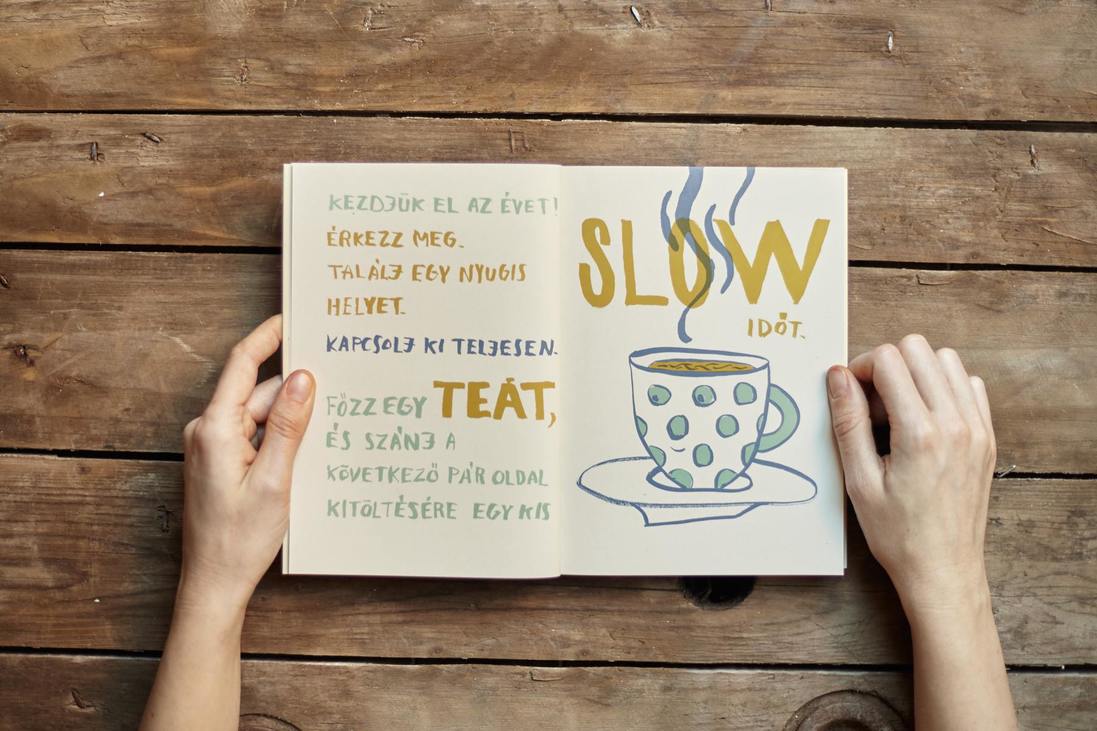 KEZDJÜK EL AZ ÉVET!
ÉRKEZZ MEG.
TALÁLJ EGY NYUGIS
HELYET.
KAPCSOLJ KI TELJESEN.
FŐZZ EGY TEÁT,
ÉS SZÁNJ A
KÖVETKEZŐ PÁR OLDAL
KITÖLTÉSÉRE EGY KIS
SLOW
IDŐT.